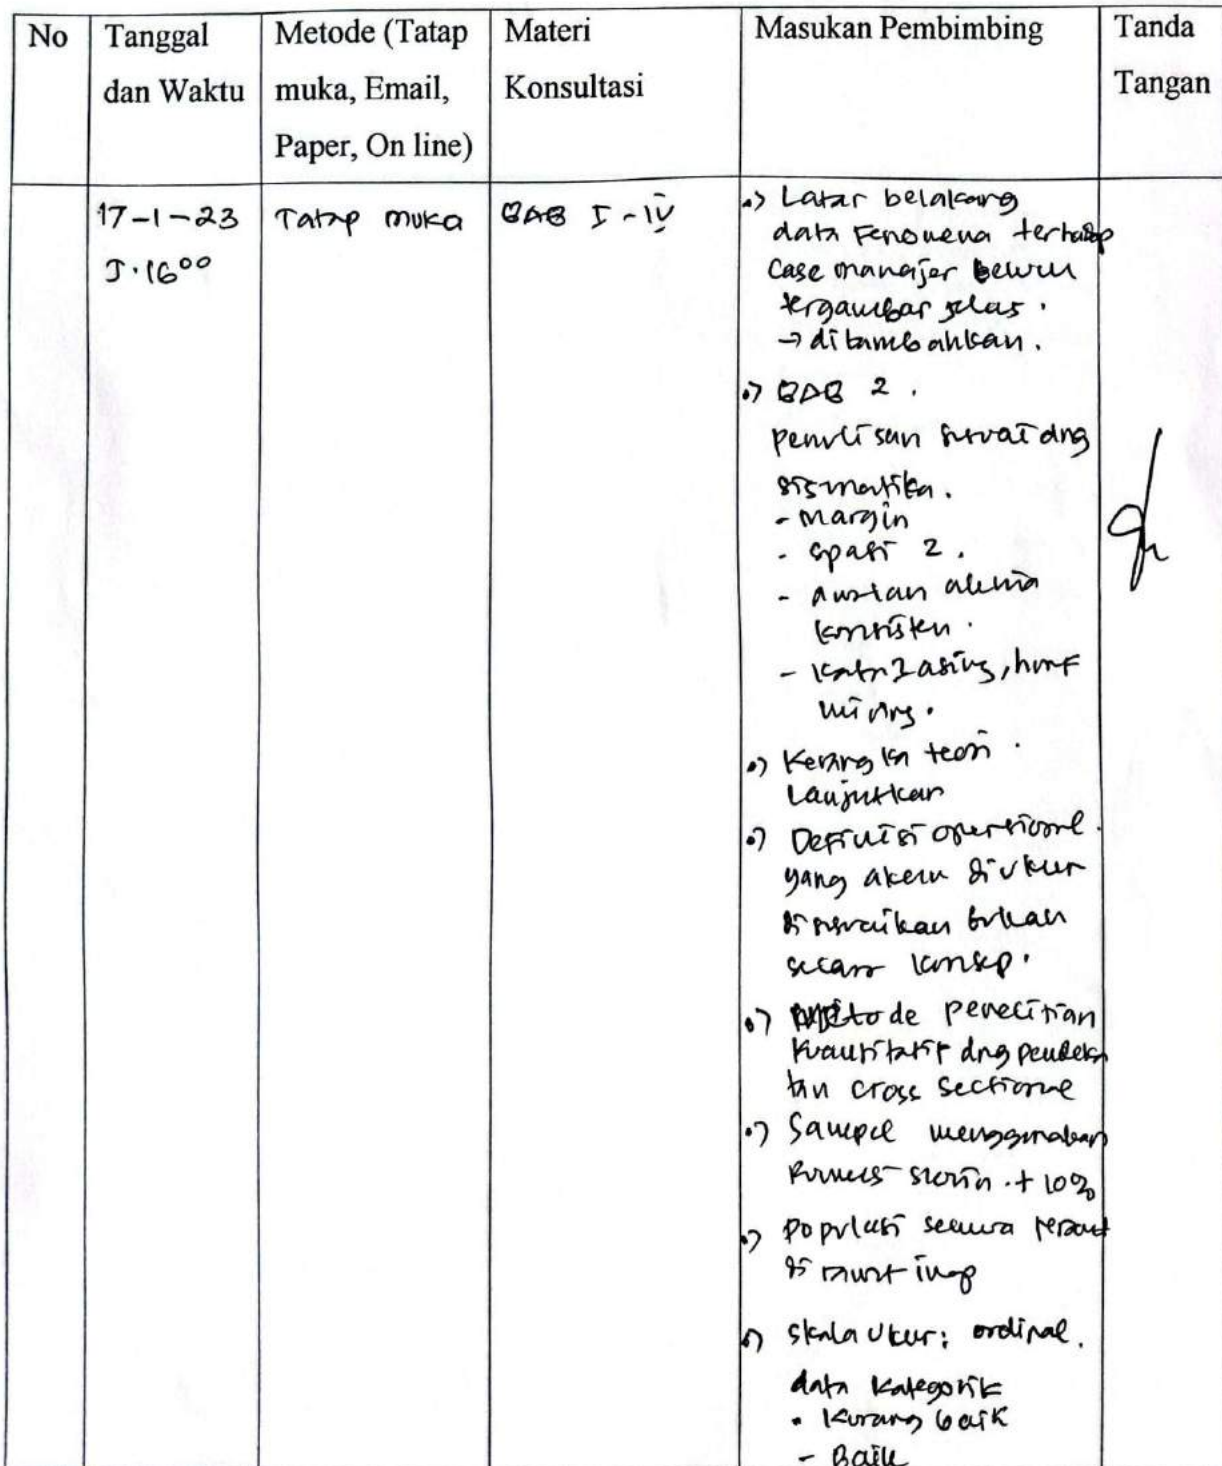 No
Tanggal
dan Waktu
Metode (Tatap
muka, Email,
Paper, On line)
Materi
Konsultasi
Masukan Pembimbing
Tanda
Tangan
17-1-23
J.16⁰⁰
Tatap muka
BAB I - IV
Latar belakang
data Fenomena terhadap
Case manajer belum
tergambar jelas.
→ ditambahkan.
BAB 2.
penulisan sesuai dng
sismatika.
- margin
- spasi 2.
- aturan alenia
konsisten.
- kata2 asing, huruf
miring.
Kerangka teori.
Lanjutkan
Definisi operasional.
yang akan diukur
disesuaikan bukan
secara konsep.
Metode penelitian
kuantitatif dng pendeka
tan cross sectional
Sampel menggunakan
Rumus slovin. + 10%
populasi semua perawat
di rawat inap
Skala Ukur: ordinal.
data kategorik
• Kurang baik
- Baik